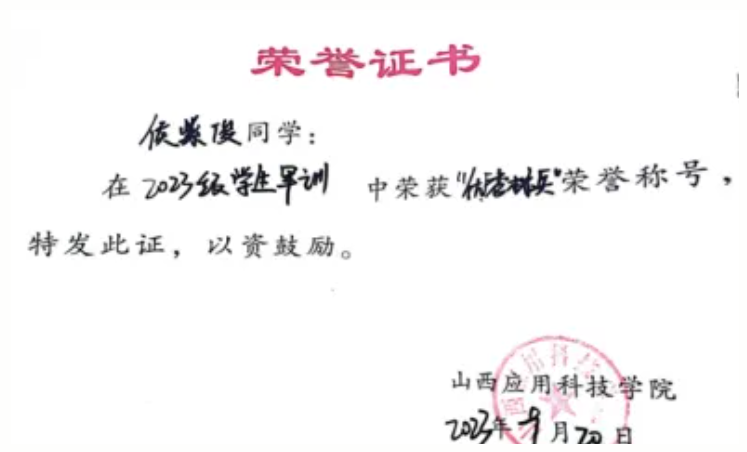 荣誉证书
侯紫俊同学：
在2023级学生军训 中荣获“优秀标兵”荣誉称号，
特发此证，以资鼓励。
山西应用科技学院
2023年9月20日